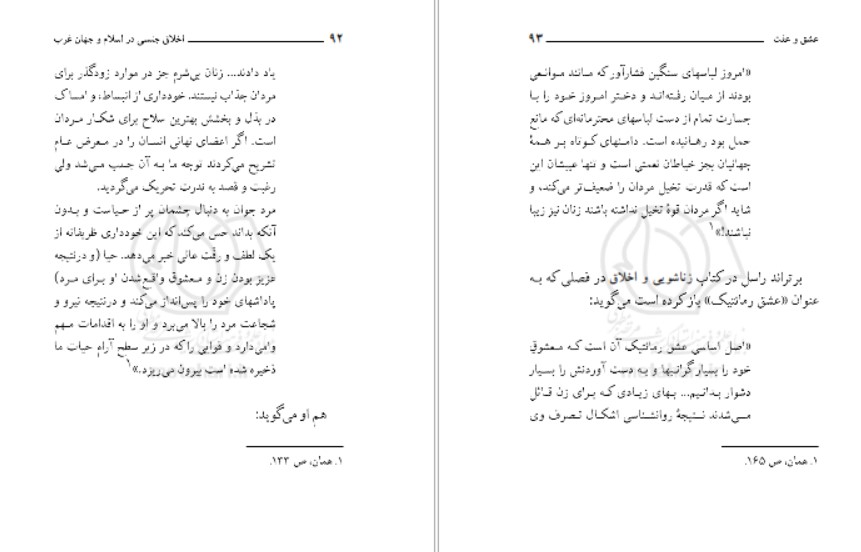 ۹۲ اخلاق جنسی در اسلام و جهان غرب
یاد دادند... زنان بی‌شرم جز در موارد زودگذر برای
مردان جذاب نیستند. خودداری از انبساط، و امساک
در بذل و بخشش بهترین سلاح برای شکار مردان
است. اگر اعضای نهانی انسان را در معرض عام
تشریح می‌کردند توجه ما به آن جلب می‌شد ولی
رغبت و قصد به ندرت تحریک می‌گردید.
مرد جوان به دنبال چشمان پر از حیاست و بدون
آنکه بداند حس می‌کند که این خودداری ظریفانه از
یک لطف و رقّت عالی خبر می‌دهد. حیا (و درنتیجه
عزیز بودن زن و معشوق واقع‌شدن او برای مرد)
پاداشهای خود را پس‌انداز می‌کند و درنتیجه نیرو و
شجاعت مرد را بالا می‌برد و او را به اقدامات مهم
وامی‌دارد و قوایی را که در زیر سطح آرام حیات ما
ذخیره شده است بیرون می‌ریزد.»۱
هم او می‌گوید:
۱. همان، ص ۱۳۳.
عشق و عفت ۹۳
«امروز لباسهای سنگین فشارآور که مانند موانعی
بودند از میان رفته‌اند و دختر امروز خود را با
جسارت تمام از دست لباسهای محترمانه‌ای که مانع
حمل بود رهانیده است. دامنهای کوتاه بر همهٔ
جهانیان بجز خیاطان نعمتی است و تنها عیبشان این
است که قدرت تخیل مردان را ضعیف‌تر می‌کند، و
شاید اگر مردان قوهٔ تخیل نداشته باشند زنان نیز زیبا
نباشند!»۱
برتراند راسل در کتاب زناشویی و اخلاق در فصلی که به
عنوان «عشق رمانتیک» باز کرده است می‌گوید:
«اصل اساسی عشق رمانتیک آن است که معشوق
خود را بسیار گرانبها و به دست آوردنش را بسیار
دشوار بدانیم... بهای زیادی که برای زن قائل
می‌شدند نتیجهٔ روانشناسی اشکال تصرف وی
۱. همان، ص ۱۶۵.